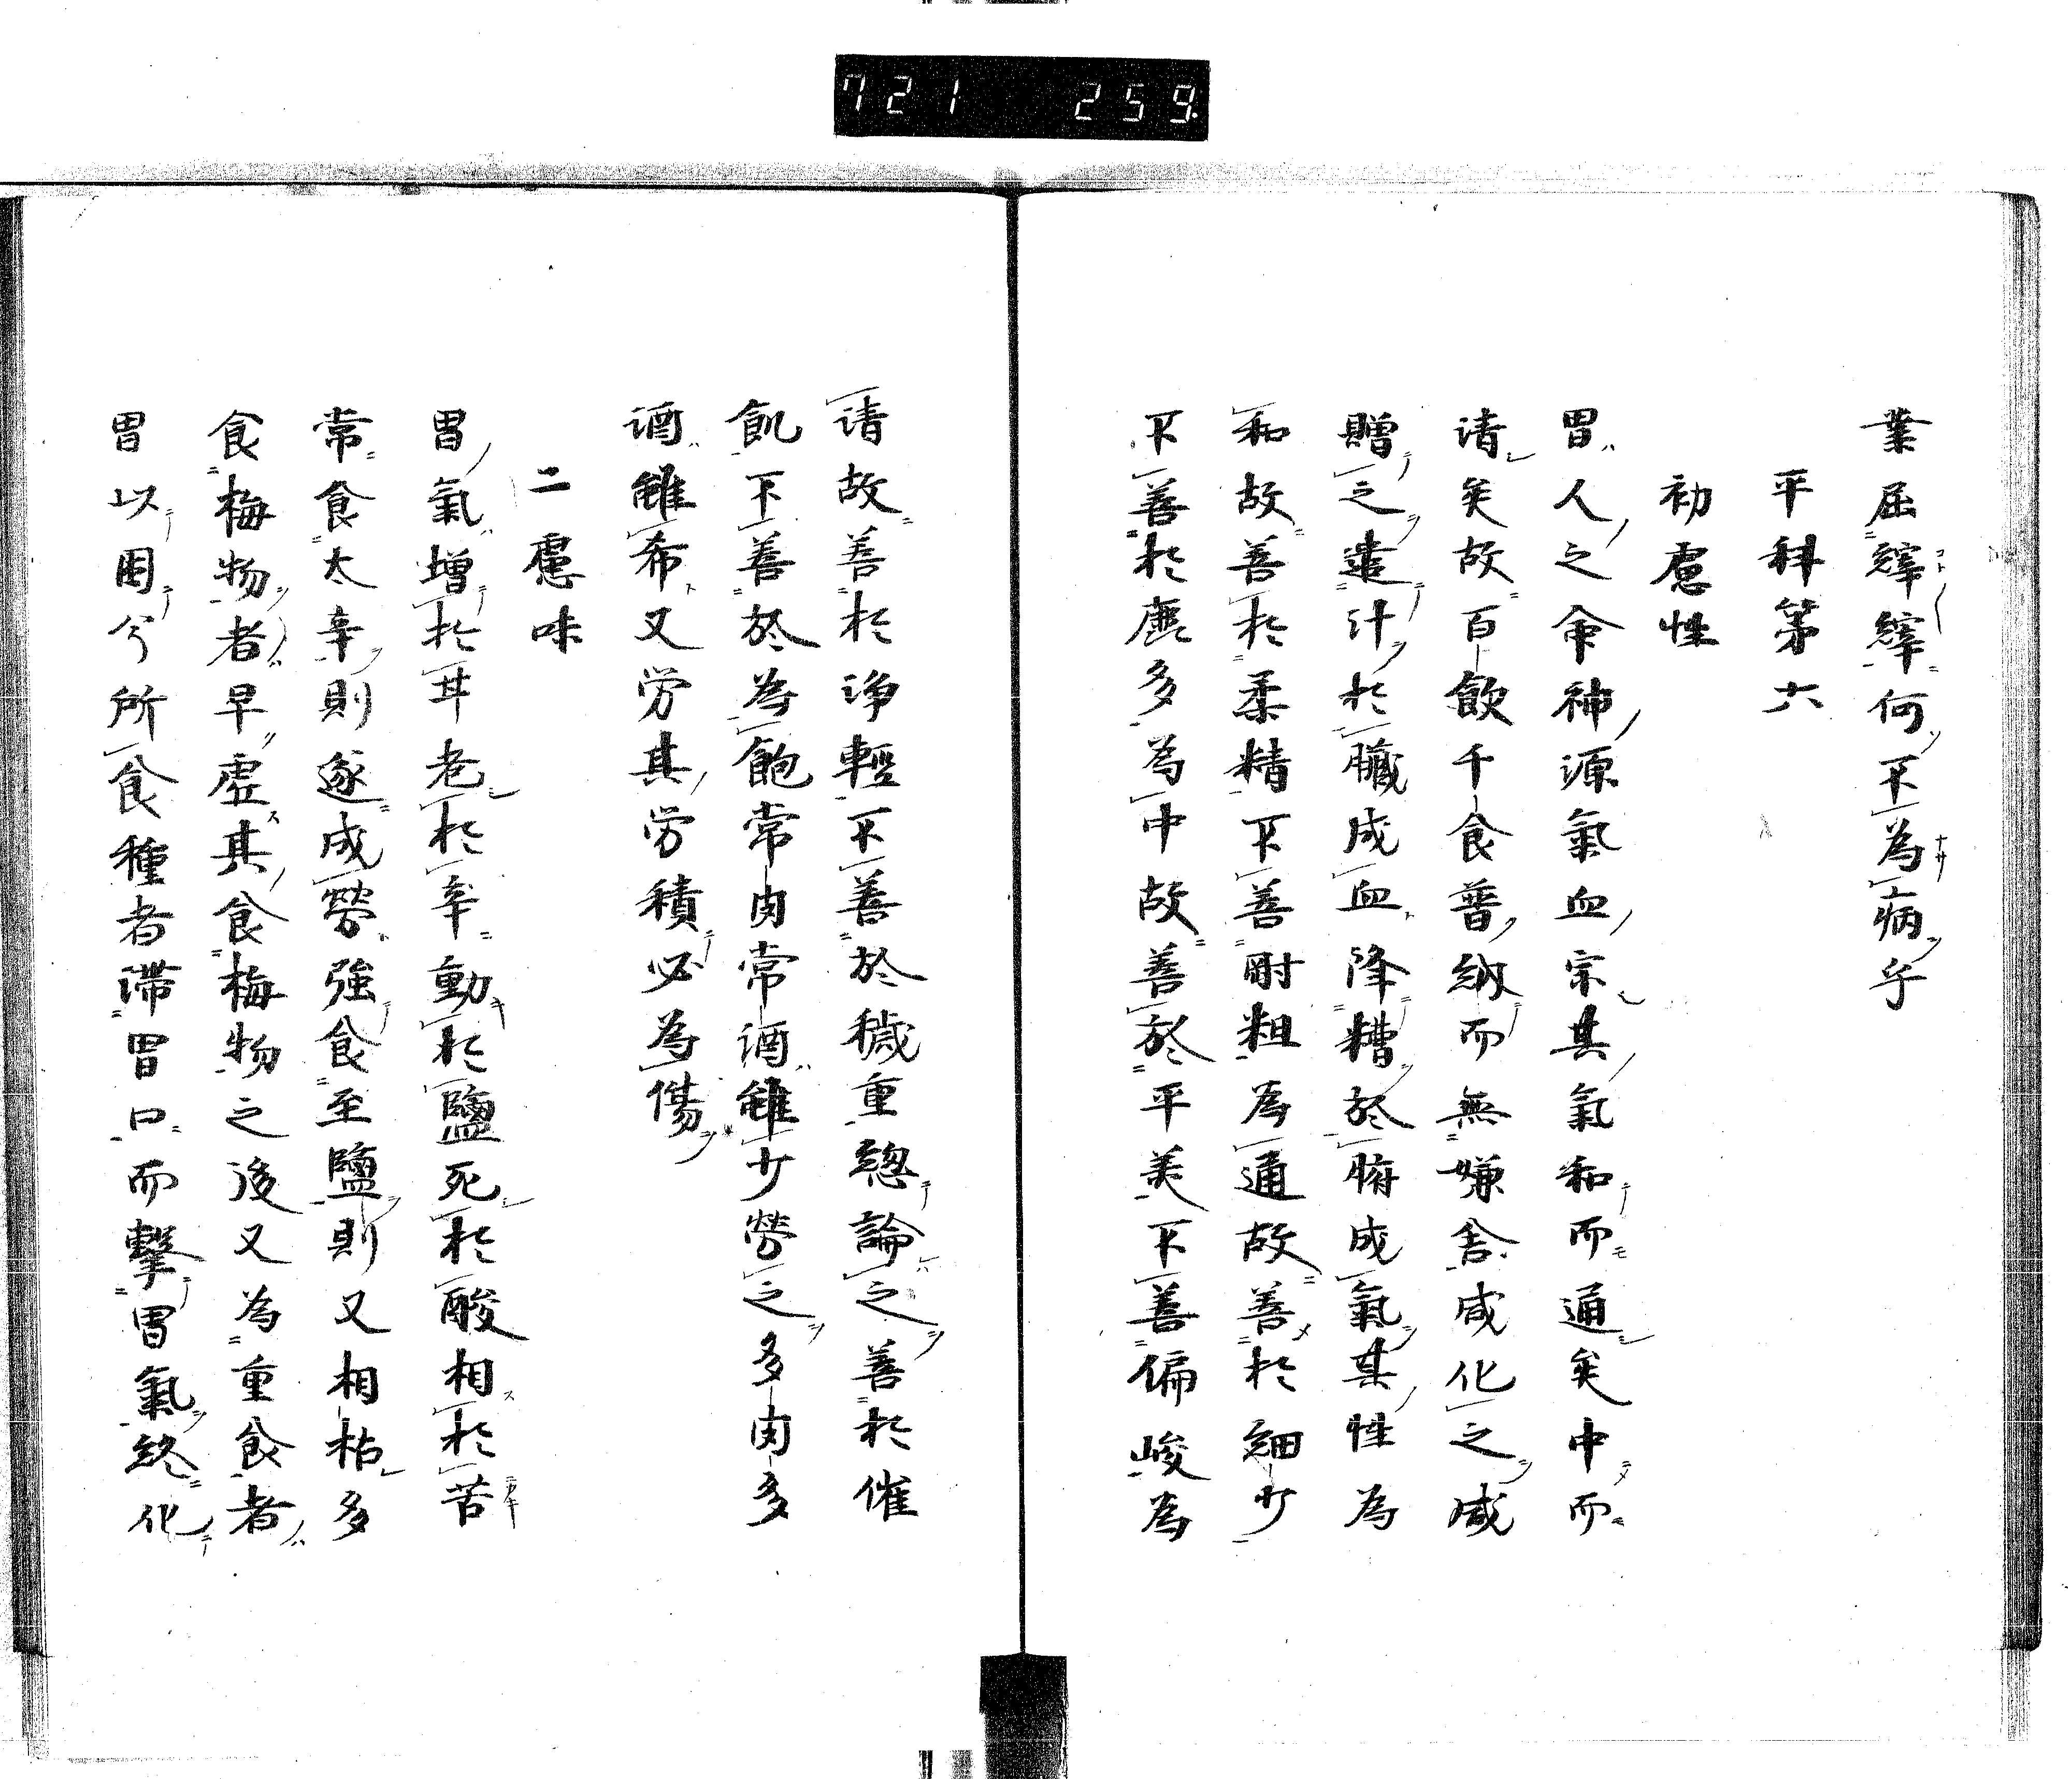 721 259.
業屈縡縡何不為病乎
平科第六
初慮性
胃人之命神源氣血宗其氣和而通矣中而
清矣故百飲千食普納而無嫌舍咸化之咸
贈之遣汁於臟成血降糟於腑成氣其性為
和故善於柔精不善耐粗為通故善於細少
不善於麁多為中故善於平美不善偏峻為
清故善於淨輕不善於穢重總論之善於催
飢不善於為飽常肉常酒雖少勞之多肉多
酒雖希又労其労積必為傷
二慮味
胃氣增於甘老於辛動於鹽死於酸相於苦
常食太辛則遂成勞強食至鹽則又相枯多
食梅物者早虛其食梅物之後又為重食者
胃以困兮所食種者滯胃口而擊胃氣終化